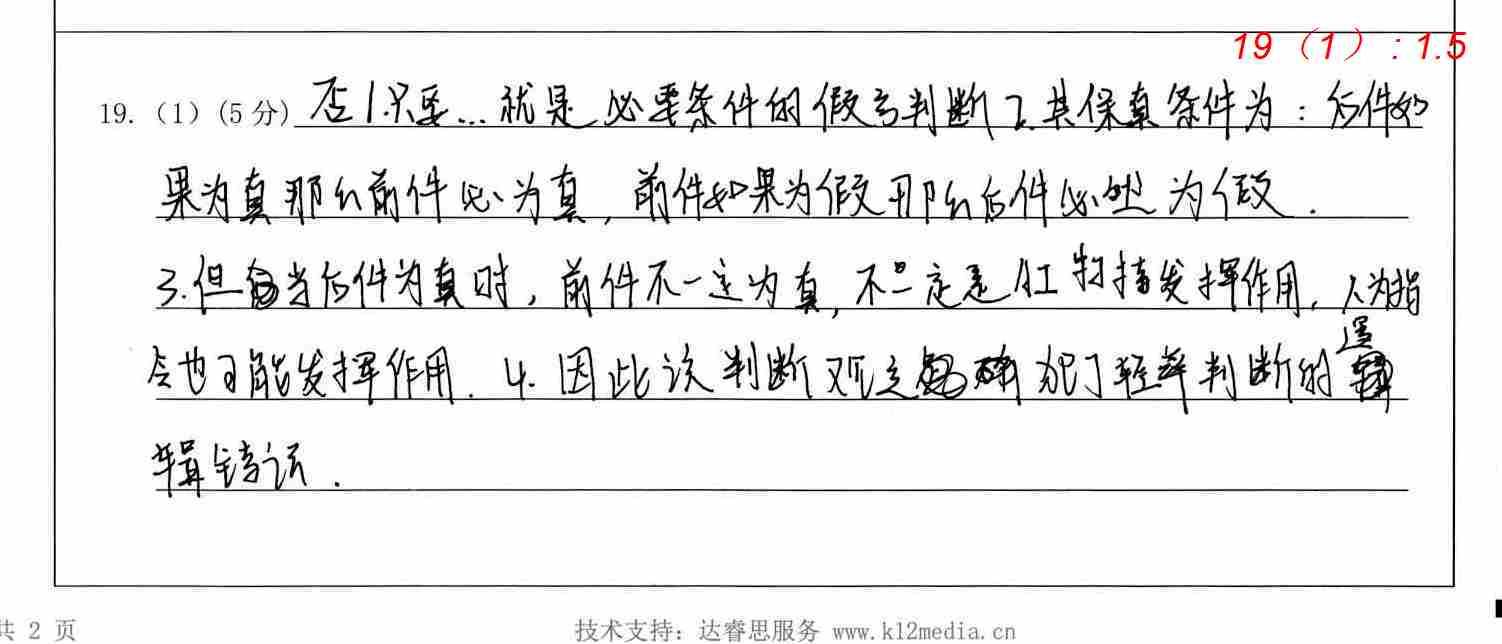 19（1）: 1.5
19.（1）(5分) 否 1.只要…就是 必要条件的假言判断 2.其保真条件为：后件如
果为真那么前件必为真，前件如果为假那么后件必然为假．
3.但当后件为真时，前件不一定为真，不一定是 发挥作用，人为指
令也可能发挥作用． 4.因此该判断 犯了轻率判断的逻
辑错误．
共 2 页
技术支持：达睿思服务 www.k12media.cn